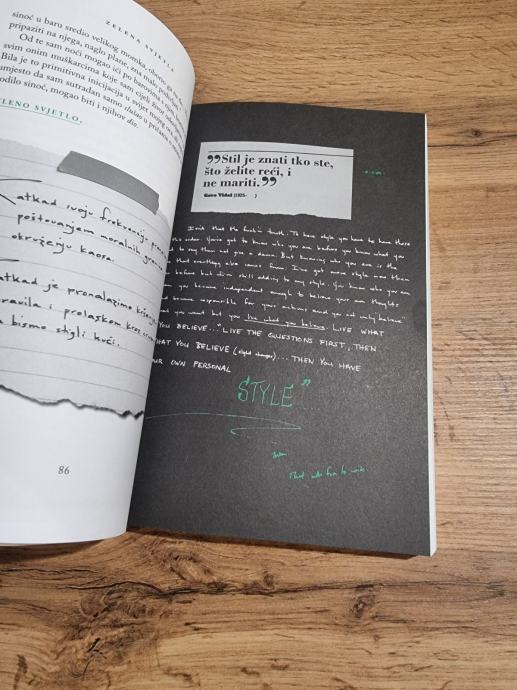 ZELENA SVJETLA
sinoć u baru sredio velikog momka, oborio ga s
pripaziti na njega, naglo plane, zna malo poludjeti."
Od te sam noći mogao ići po barovima s
svim onim muškarcima koje sam cijeli život
Bila je to primitivna inicijacija u svijet mojeg
umjesto da sam sutradan samo slušao u pričama o
odilo sinoć, mogao biti i njihov dio.
ELENO SVJETLO.
katkad svoju frekvenciju
poštovanjem moralnih
okruženju kaosa.
atkad je pronalazimo
ravila i prolaskom kroz
a bismo stigli kući.
86
”Stil je znati tko ste,
što želite reći, i
ne mariti.”
Gore Vidal (1925- )
Isn't that the fuckin truth. To have style you have to have these
this order. You've got to know who you are before you know what you
to say then not give a damn. But knowing who you are is the
that everything else comes from. I've got more style now than
before but I'm still adding to my style. You know who you are
you become independent enough to believe your own thoughts
and become responsible for your actions and you not only believe
what you want but you live what you believe. LIVE WHAT
YOU BELIEVE..."LIVE THE QUESTIONS FIRST, THEN
WHAT YOU BELIEVE (slight changes)... THEN YOU HAVE
OUR OWN PERSONAL
STYLE"